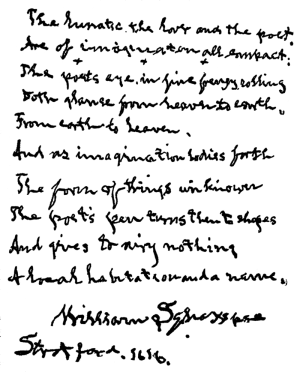 The lunatic, the lover and the poet.
Are of imagination all compact:
The poets eye, in fine frenzy rolling
Doth glance from heaven to earth,
From earth to heaven,
And as imagination bodies forth
The form of things unknown
The poet's pen turns them to shapes
And gives to airy nothing
A local habitation and a name.
William
Stratford. 1616.